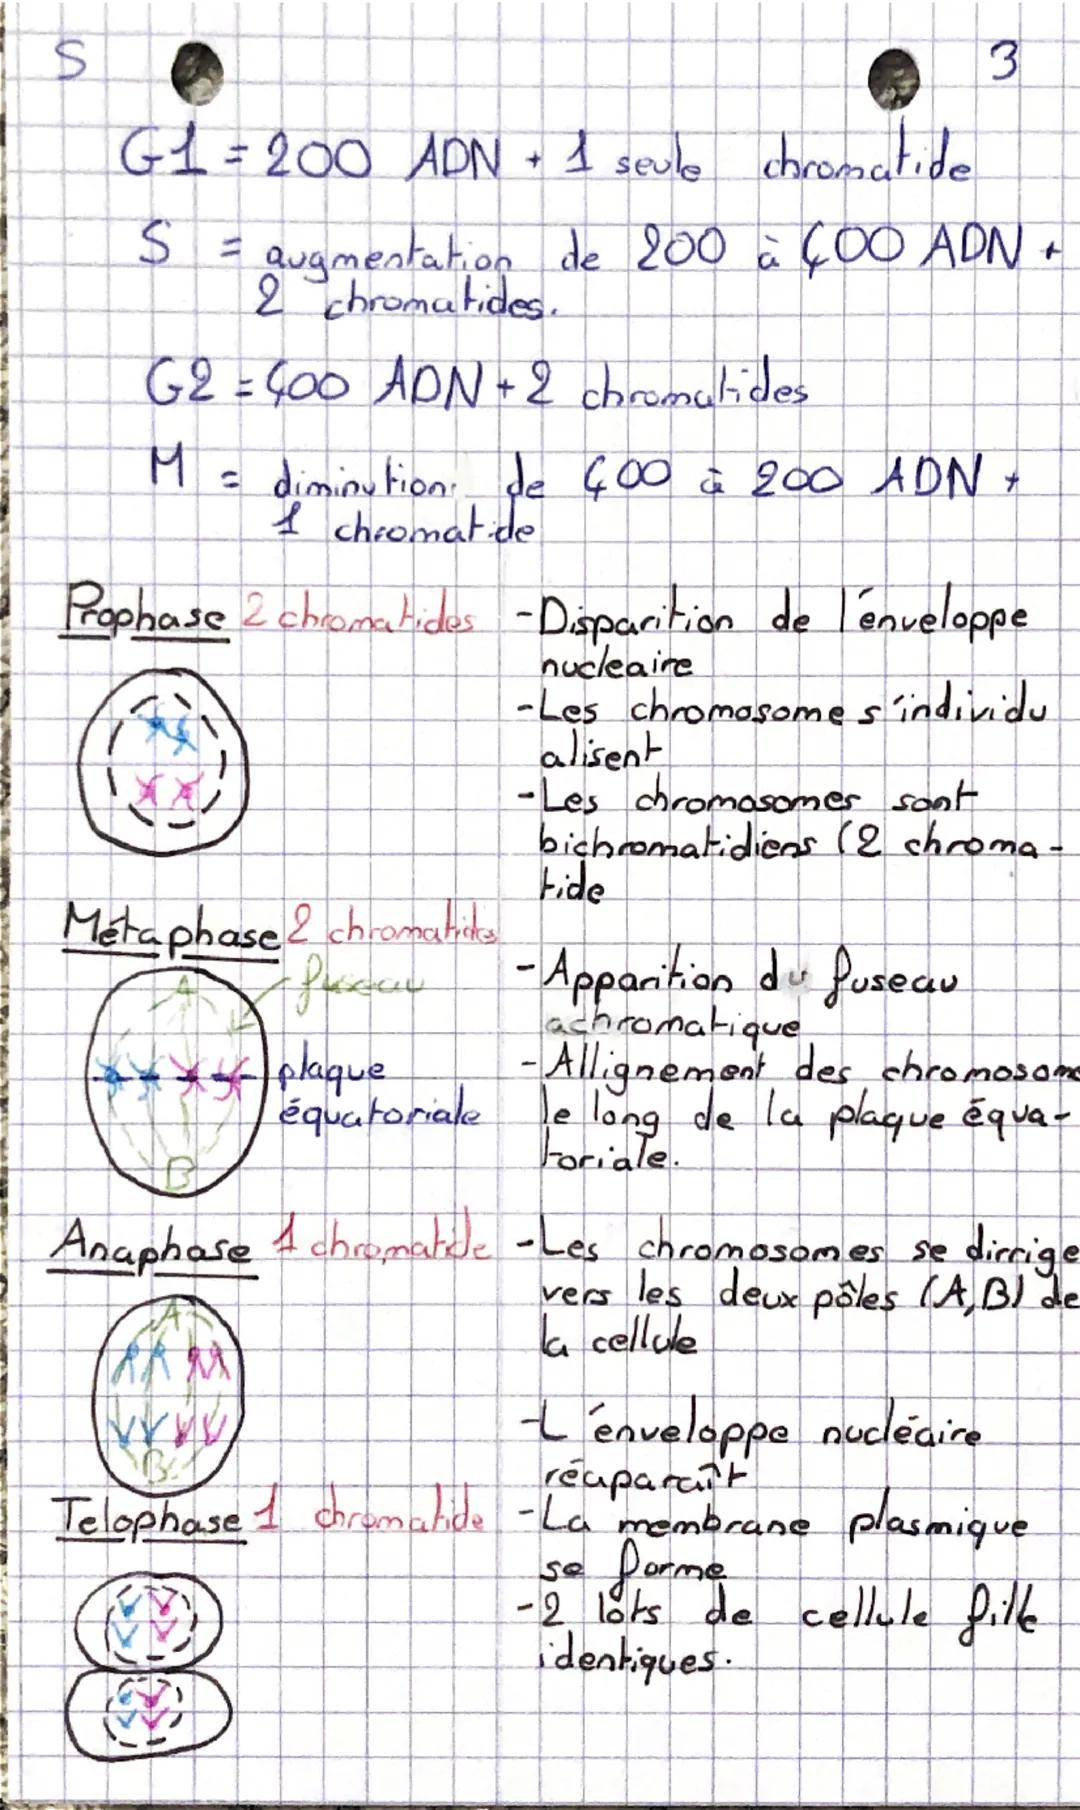 S 3
G1 = 200 ADN + 1 seule chromatide
S = augmentation de 200 à 400 ADN +
2 chromatides.
G2 = 400 ADN + 2 chromatides
M = diminution de 400 à 200 ADN +
1 chromatide
Prophase 2 chromatides
-Disparition de l'énveloppe
nucleaire
-Les chromosome s'individu
alisent
-Les chromosomes sont
bichromatidiens (2 chroma-
tide
Métaphase 2 chromatides
fuseau
A
plaque
équatoriale
B
-Apparition du fuseau
achromatique
-Allignement des chromosome
le long de la plaque équa-
toriale.
Anaphase 1 chromatide
A
B
-Les chromosomes se dirrige
vers les deux pôles (A,B) de
la cellule
Telophase 1 chromatide
-L'énveloppe nucléaire
réaparaît
-La membrane plasmique
se forme
-2 lots de cellule fille
identiques.